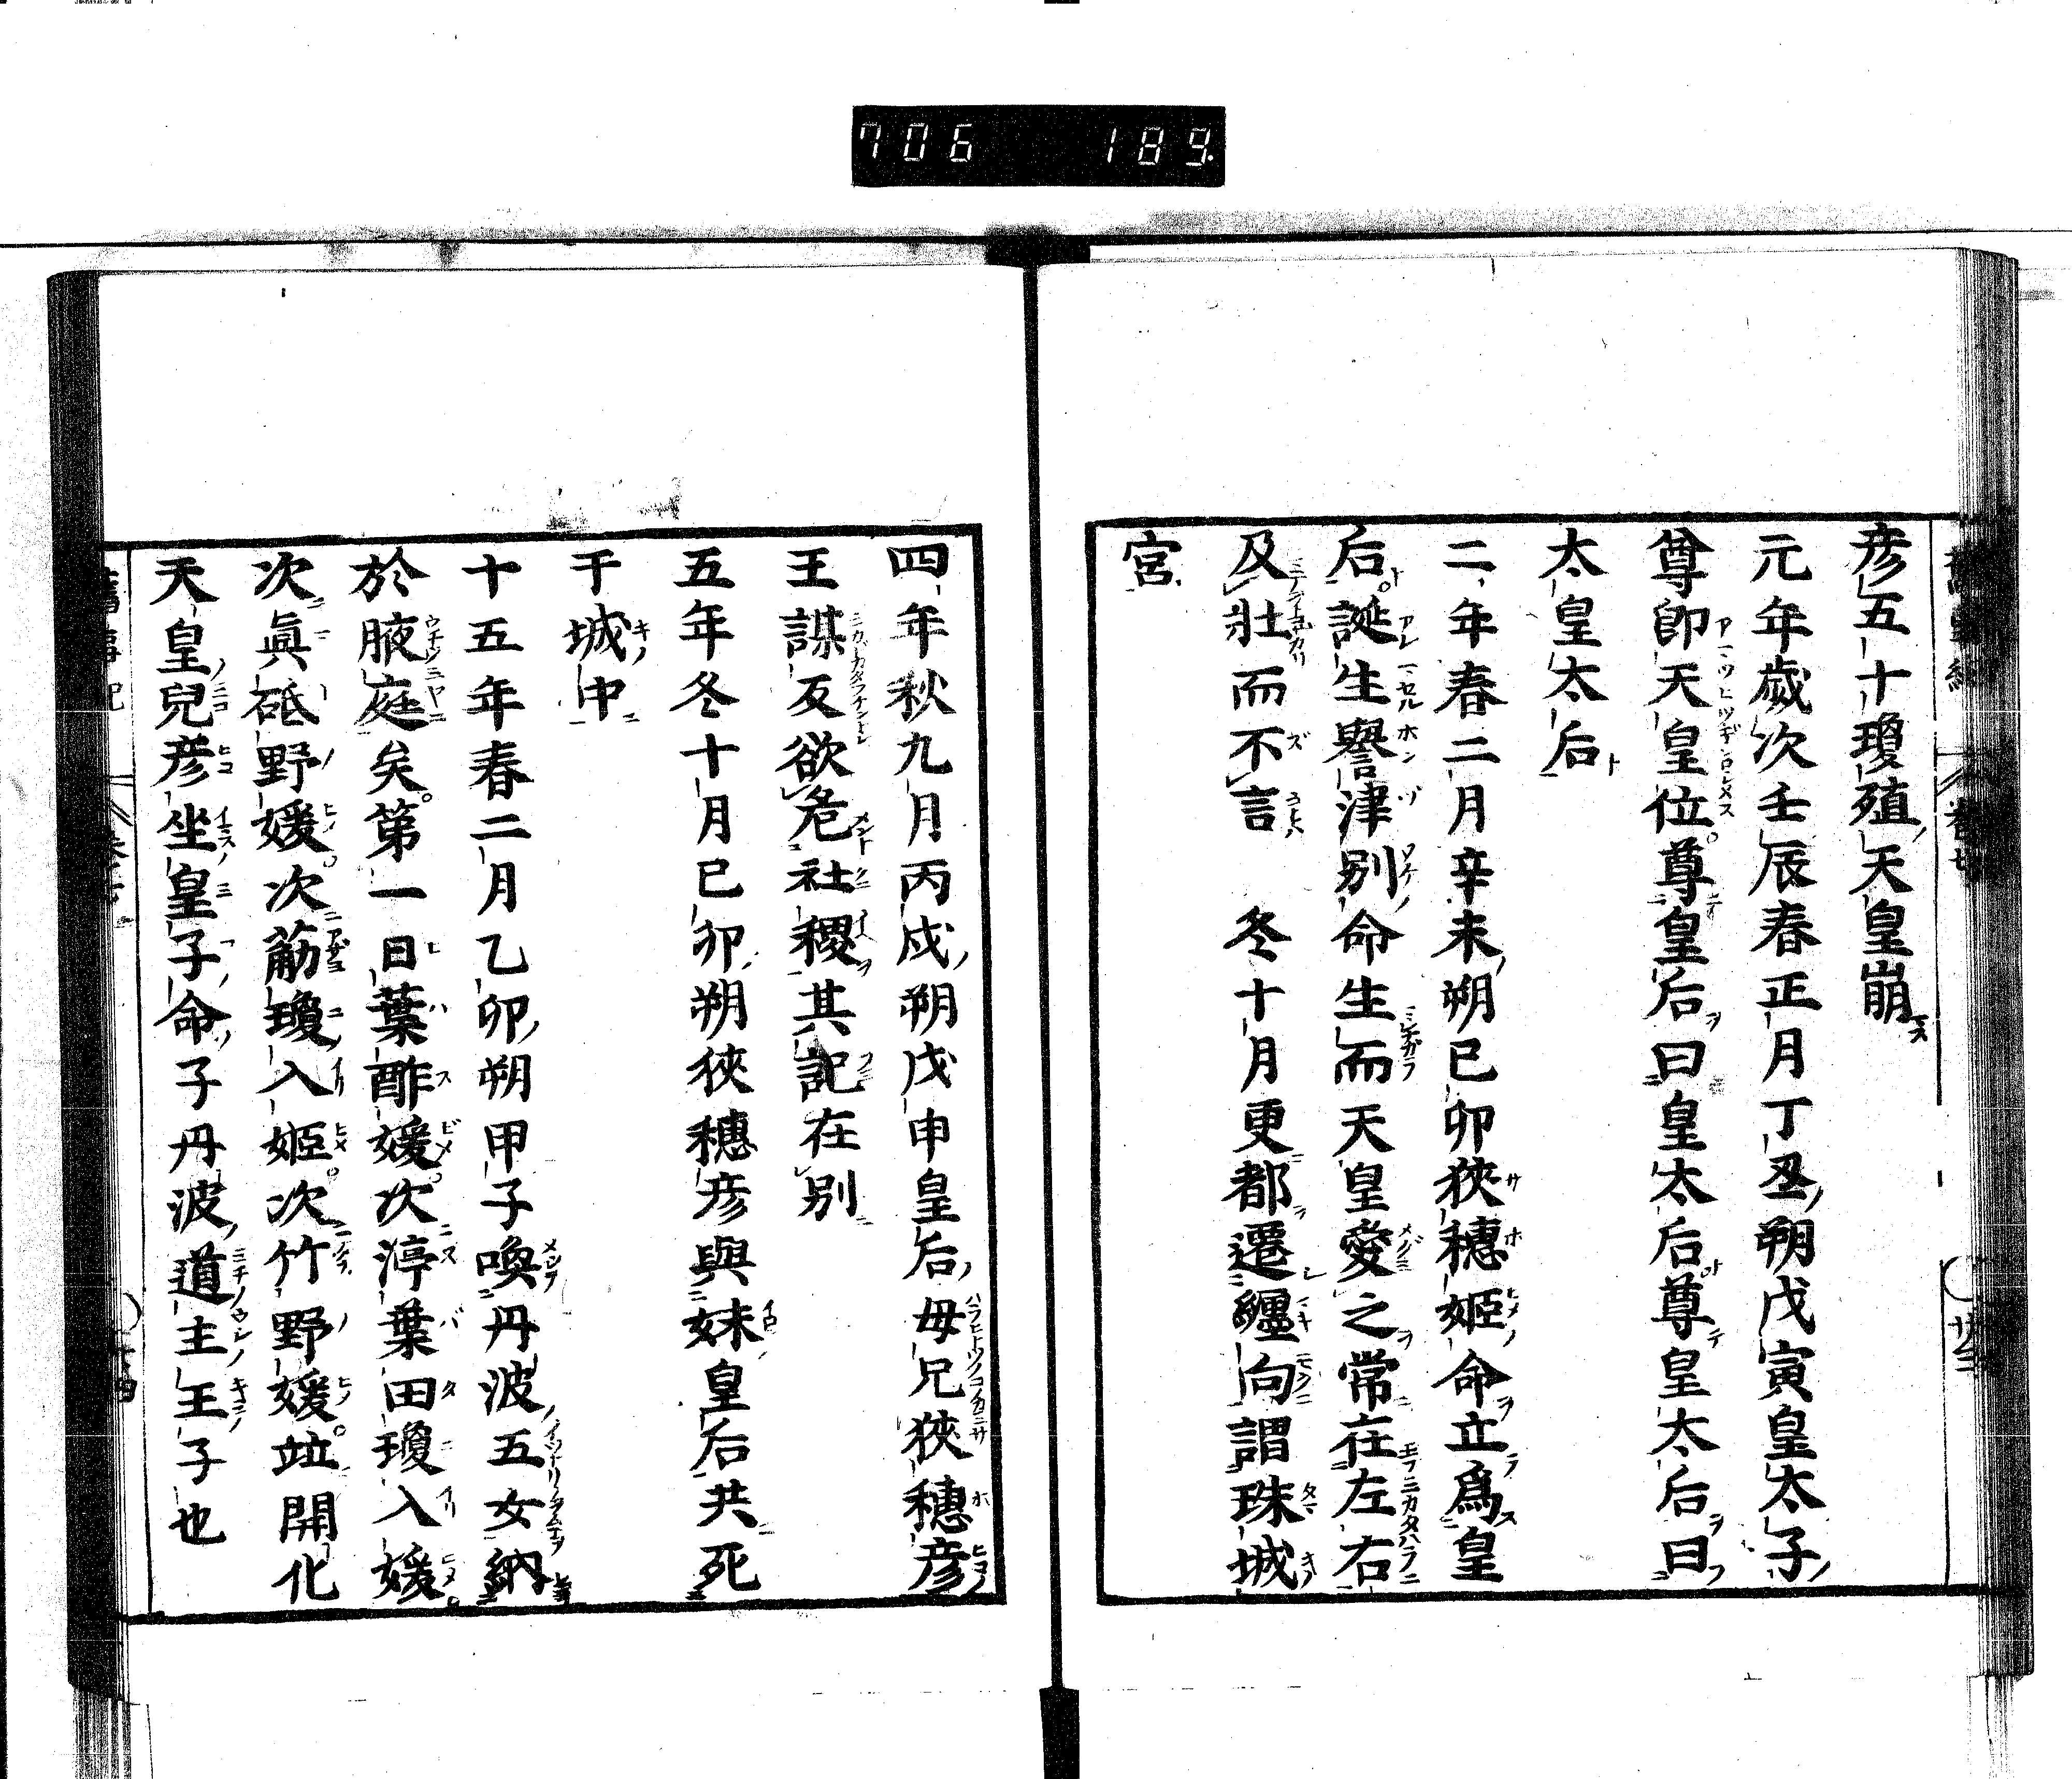 706 189.
彦五十瓊殖天皇崩
元年歳次壬辰春正月丁丑朔戊寅皇太子
尊即天皇位尊皇后曰皇太后尊皇太后曰
太皇太后
二年春二月辛未朔已卯狹穗姫命立爲皇
后誕生譽津別命生而天皇愛之常在左右
及壯而不言 冬十月更都遷纏向謂珠城
宮
四年秋九月丙戍朔戊申皇后母兄狹穗彦
王謀反欲危社稷其記在別
五年冬十月已卯朔狹穗彦與妹皇后共死
于城中
十五年春二月乙卯朔甲子喚丹波五女納
於腋庭矣第一曰葉酢媛次渟葉田瓊入媛
次眞砥野媛次薊瓊入姫次竹野媛竝開化
天皇兒彦坐皇子命子丹波道主王子也